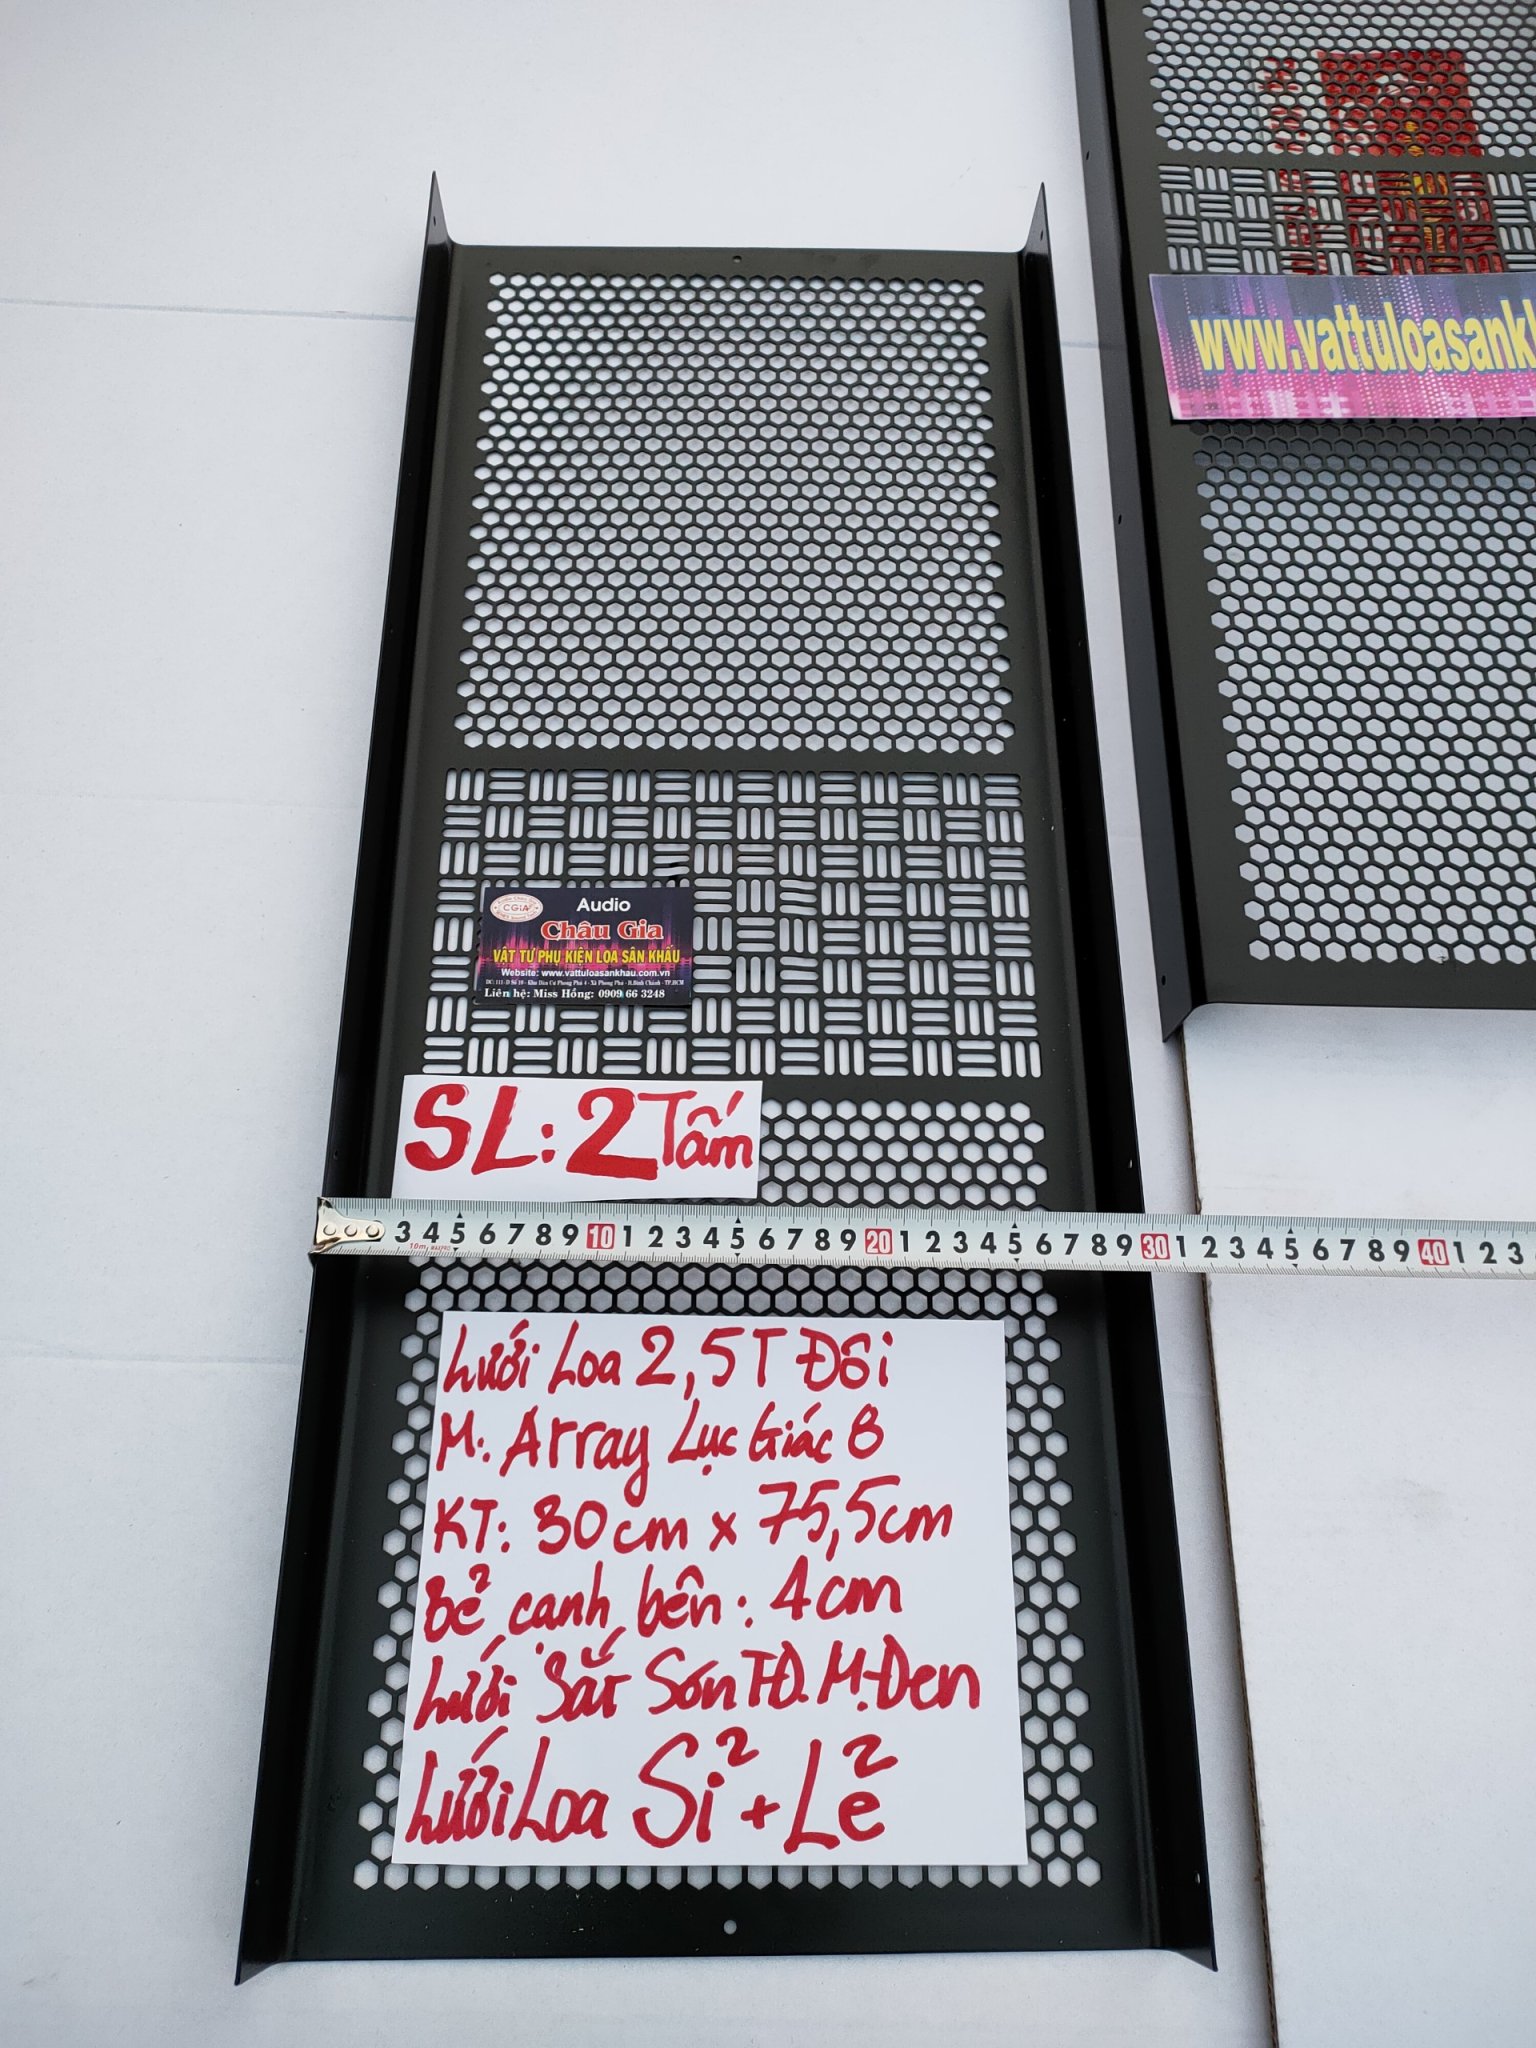 www.vattuloasankh
CGIA
Audio
Châu Gia
VẬT TƯ PHỤ KIỆN LOA SÂN KHẤU
Website: www.vattuloasankhau.com.vn
DC: 111-D Số 10 - Khu Dân Cư Phong Phú 4 - Xã Phong Phú - H.Bình Chánh - TP.HCM
Liên hệ: Miss Hồng: 0909 66 3248
SL: 2 Tấm
3 4 5 6 7 8 9 10 1 2 3 4 5 6 7 8 9 20 1 2 3 4 5 6 7 8 9 30 1 2 3 4 5 6 7 8 9 40 1 2 3
10m
Lưới Loa 2,5T Đôi
M: Array Lục Giác 8
KT: 30cm x 75,5cm
Bẻ cạnh bên: 4cm
Lưới Sắt Sơn TĐ. M. Đen
Lưới Loa Sỉ + Lẻ